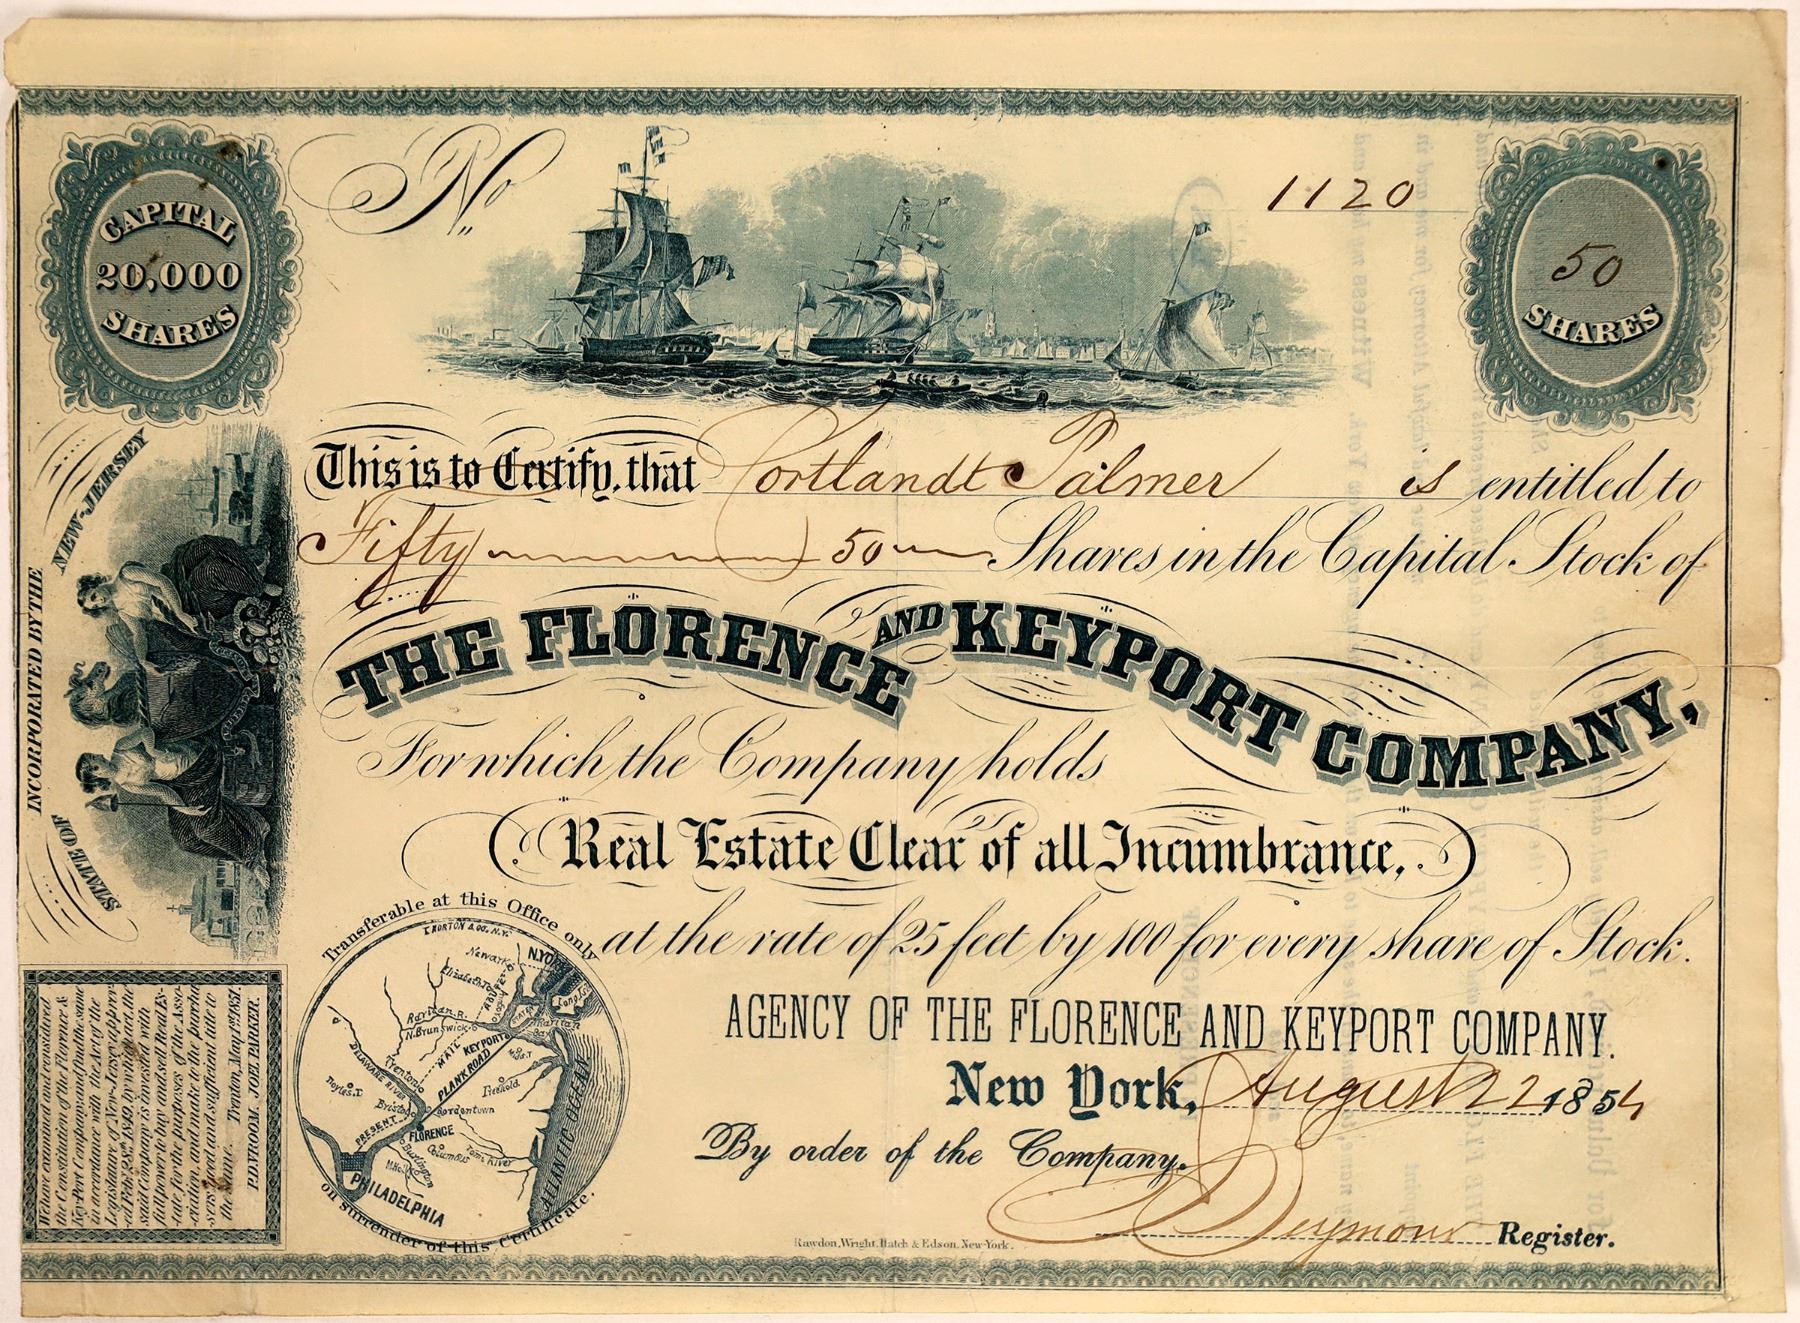 No
1120
CAPITAL
20,000
SHARES
50
SHARES
This is to Certify, that Cortlandt Palmer is entitled to
Fifty 50 Shares in the Capital Stock of
THE FLORENCE AND KEYPORT COMPANY,
For which the Company holds
Real Estate Clear of all Incumbrance,
at the rate of 25 feet by 100 for every share of Stock.
AGENCY OF THE FLORENCE AND KEYPORT COMPANY.
New York, August 22 1854
By order of the Company.
Seymour Register.
Rawdon, Wright, Hatch & Edson, New-York.
INCORPORATED BY THE
STATE OF
NEW-JERSEY
We have examined and considered
the Constitution of the Florence &
Key Port Company, and find the same
in accordance with the Act of the
Legislature of New-Jersey, approv-
ed Feb. 28th 1849, by which act, the
said Company is invested with
full power to buy and sell Real Es-
tate, for the purposes of the Asso-
ciation and make to the purcha-
sers good and sufficient title to
the same. Trenton, May 1st 1851.
P.D. VROOM. JOEL PARKER.
Transferable at this Office only
on surrender of this Certificate.
T. HORTON & CO. N.Y.
Newark
N.YORK
Elizabeth Tn
Long Isl
Raritan R.
N. Brunswick
Raritan
Bay
MAIL
ROUTE
KEYPORT
PLANK ROAD
Freehold
DELAWARE RIVER
Trenton
Doyles.T
Bristol
Bordentown
PRESENT
FLORENCE
Columbus
Toms River
Burlington
PHILADELPHIA
ATLANTIC OCEAN